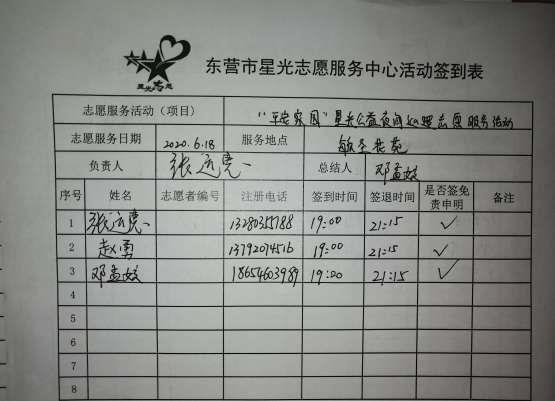 星光志愿
东营市星光志愿服务中心活动签到表
志愿服务活动（项目） "平安家园"星光公益夜间巡逻志愿服务活动
志愿服务日期 2020.6.18 服务地点
负责人 张运亮 总结人 邓孟姣
序号 姓名 志愿者编号 注册电话 签到时间 签退时间 是否签免责申明 备注
1 张运亮 13280355788 19:00 21:15 ✓
2 赵勇 13792074516 19:00 21:15 ✓
3 邓孟姣 18654603989 19:00 21:15 ✓
4
5
6
7
8